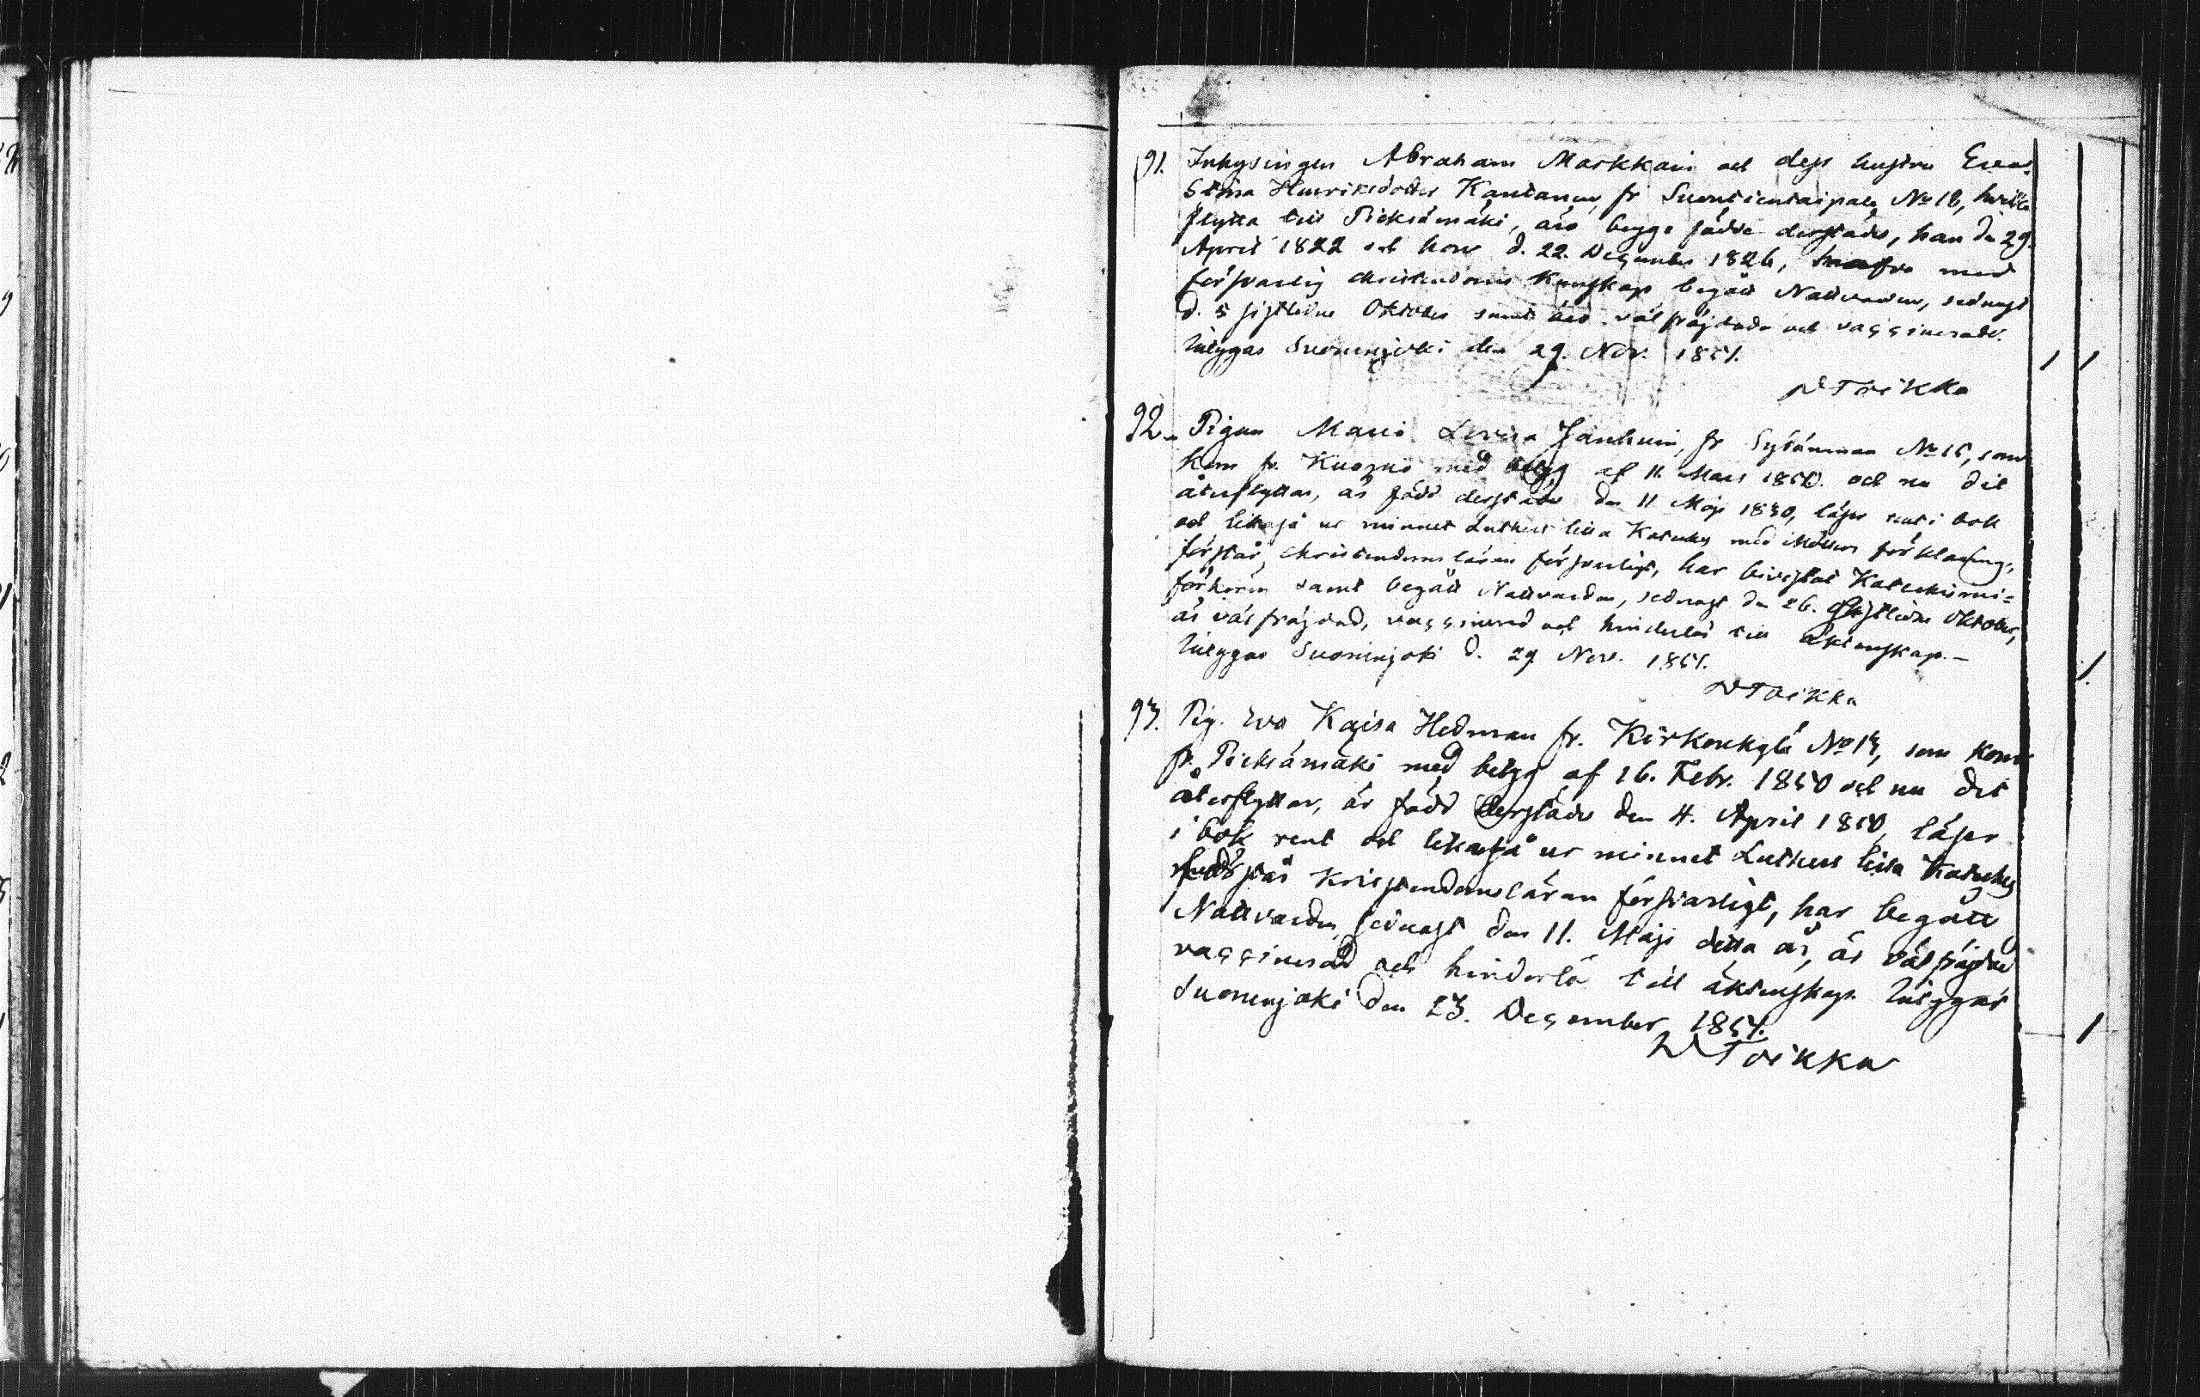 91. Inhysingen Abraham Markkain och dess hustru Eva
Stina Henriksdotter Kantanen, fr Suontientaipale No 18, hvilka
flytta till Pieksämäki, äro begge födde derstädes, han d. 29.
April 1822 och hon d. 22. December 1826, hafva med
försvarlig christendoms kunskap begått Nattvarden, sednast
d. 5 sistledne Oktober samt äro välfräjdade och vaccinerade.
Intygas Suonenjoki den 29. Nov. 1851.
N Toikka
92. Pigan Maria Lovisa Jänhuin, fr No 15, som
kom fr. Kuopio med betyg af 11. Mars 1850. och nu dit
återflyttar, är född derstädes den 11 Maji 1830, läser rent i bok
och likaså ur minnet Lutheri lilla Kateches med förklaring,
förstår christendomsläran försvarligt, har bivistat Katechismi-
förhören samt begått Nattvarden, sednast den 26. sistledne Oktober,
är välfräjdad, vaccinerad och hinderlös till äktenskap.—
Intygas Suonenjoki d. 29 Nov. 1851.
N Toikka
93. Pig. Eva Kajsa Hedman fr. Kirkonkylä No 14, som kom
fr. Pieksämäki med betyg af 16. Febr. 1850 och nu dit
återflyttar, är född derstädes den 4. April 1810, läser
i bok rent och likaså ur minnet Lutheri lilla Kateches
förstår kristendomsläran försvarligt, har begått
Nattvarden, sednast den 11. Maji detta år, är välfräjdad
vaccinerad och hinderlös till äktenskap. Intygas
Suonenjoki den 23. December 1851.
N Toikka